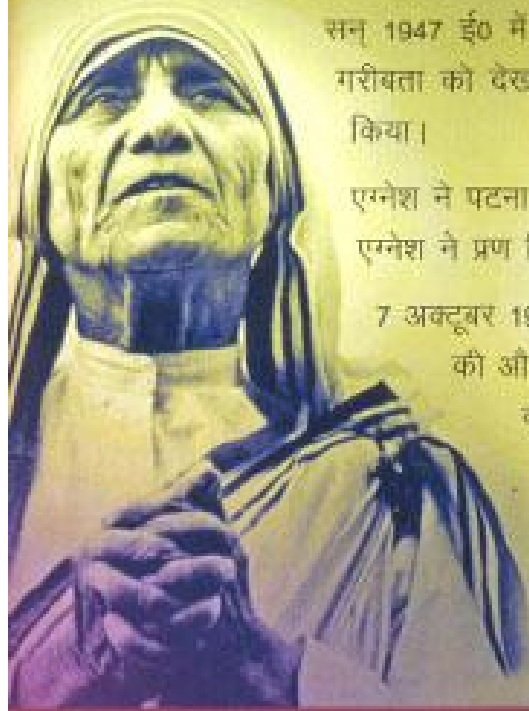 सन् 1947 ई0 में
गरीबता को देख
किया।
एग्नेश ने पटना
एग्नेश ने प्रण
7 अक्टूबर 19
की औ